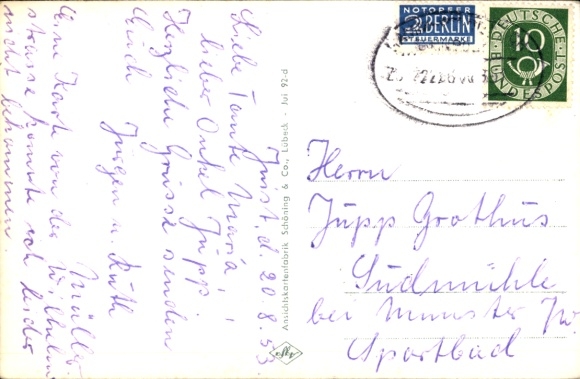 Juist, d. 20.8.53
Liebe Tante Maria!
lieber Onkel Jupp!
Herzliche Grüsse senden
Euch
Jürgen u. Ruth
Müller.
Eine Karte von der Wilhelm
strasse konnte ich leider
nicht bekommen.
Ansichtskartenfabrik Schöning & Co., Lübeck - Jui 92-d
NOTOPFER
2 BERLIN
STEUERMARKE
DEUTSCHE
10
BUNDESPOST
Herrn
Jupp Grothus
Sudmühle
bei Münster i/W
Sportbad